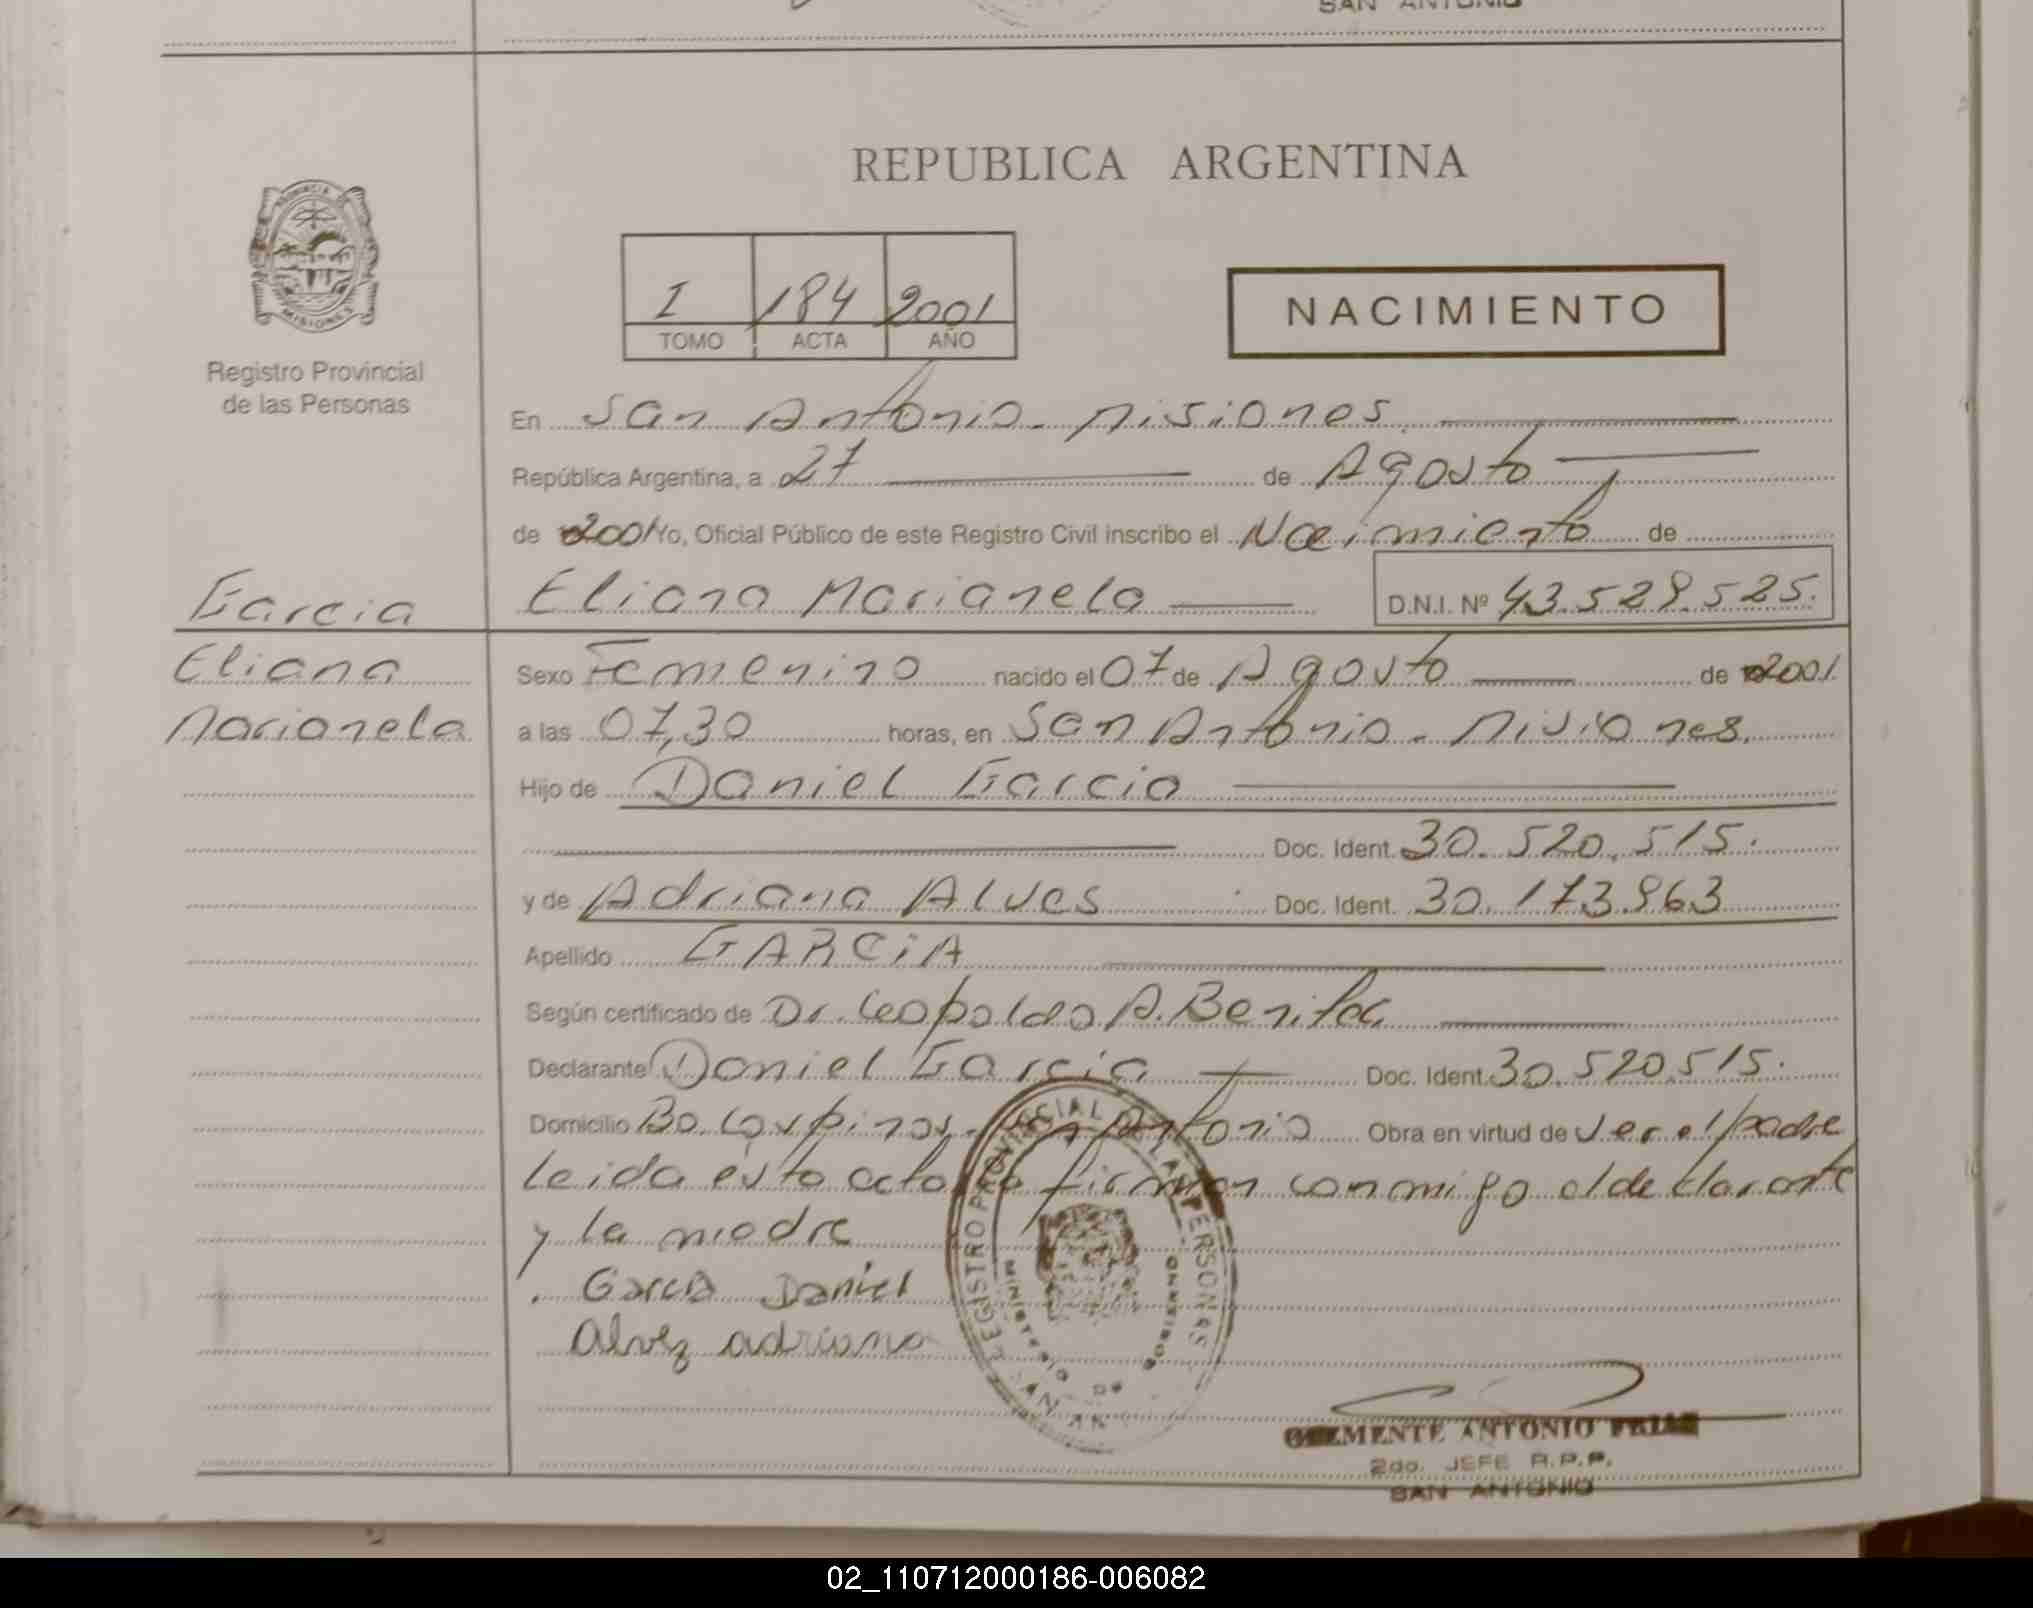 SAN ANTONIO
REPUBLICA ARGENTINA
PROVINCIA DE
MISIONES
Registro Provincial
de las Personas
I 184 2001
TOMO ACTA AÑO
NACIMIENTO
En San Antonio - Misiones.
República Argentina, a 27 de Agosto
de 2001 Yo, Oficial Público de este Registro Civil inscribo el Nacimiento de
Garcia
Eliana Marianela D.N.I. Nº 43.529.525.
Eliana
Marianela
Sexo Femenino nacido el 07 de Agosto de 2001.
a las 07,30 horas, en San Antonio - Misiones.
Hijo de Daniel Garcia
Doc. Ident. 30.520.515.
y de Adriana Alves Doc. Ident. 30.173.963
Apellido GARCiA
Según certificado de Dr. Leopoldo A. Benitez
Declarante Daniel Garcia Doc. Ident. 30.520.515.
Domicilio Bo. Antonio Obra en virtud de ser el padre
Leida esta acta la firman conmigo el declarante
y la madre
Garcia Daniel
Alvez adriana
REGISTRO PROVINCIAL DE LAS PERSONAS
MINISTERIO DE GOBIERNO
SAN AN
CLEMENTE ANTONIO
2do. JEFE R.P.P.
SAN ANTONIO
02_110712000186-006082